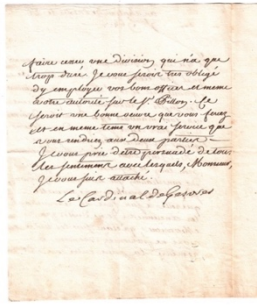 faire cesser une division, qui n'a que
trop duré. Je vous serois très obligé
d'y employer vos bons offices et meme
votre autorité sur le Sr. Billon. Ce
seroit une bonne oeuvre que vous feriez
et en meme tems un vrai service que
vous rendriez aux deux parties.
Je vous prie d'etre persuadé de tous
les sentimens avec lesquels, Monsieur,
je vous suis attaché.
Le Cardinal de Gesvres